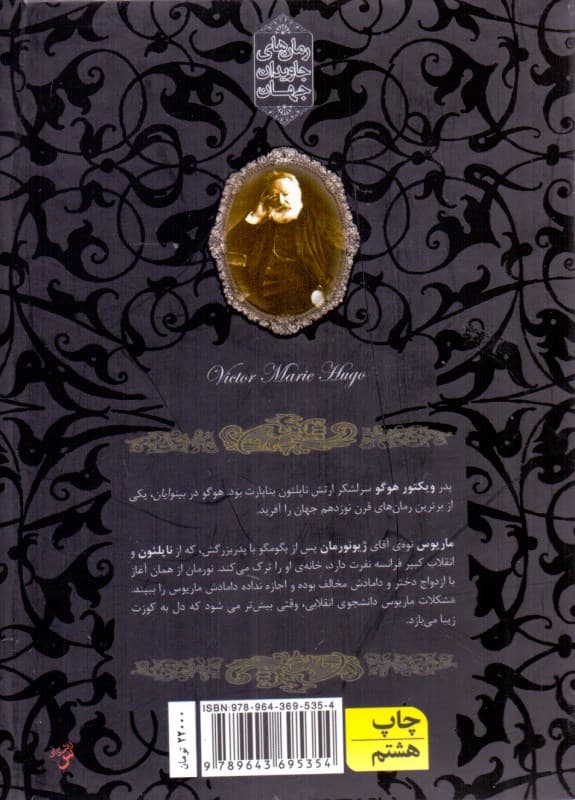 رمان‌های
جاویدان
جهان
Victor Marie Hugo
پدر ویکتور هوگو سرلشکر ارتش ناپلئون بناپارت بود. هوگو در بینوایان، یکی
از برترین رمان‌های قرن نوزدهم جهان را آفرید.
ماریوس نوه‌ی آقای ژیونورمان پس از بگومگو با پدربزرگش، که از ناپلئون و
انقلاب کبیر فرانسه نفرت دارد، خانه‌ی او را ترک می‌کند. نورمان از همان آغاز
با ازدواج دختر و دامادش مخالف بوده و اجازه نداده دامادش ماریوس را ببیند.
مشکلات ماریوس دانشجوی انقلابی، وقتی بیش‌تر می شود که دل به کوزت
زیبا می‌بازد.
ISBN: 978-964-369-535-4
9 789643 695354
۲۲۰۰۰ تومان
چاپ
هشتم